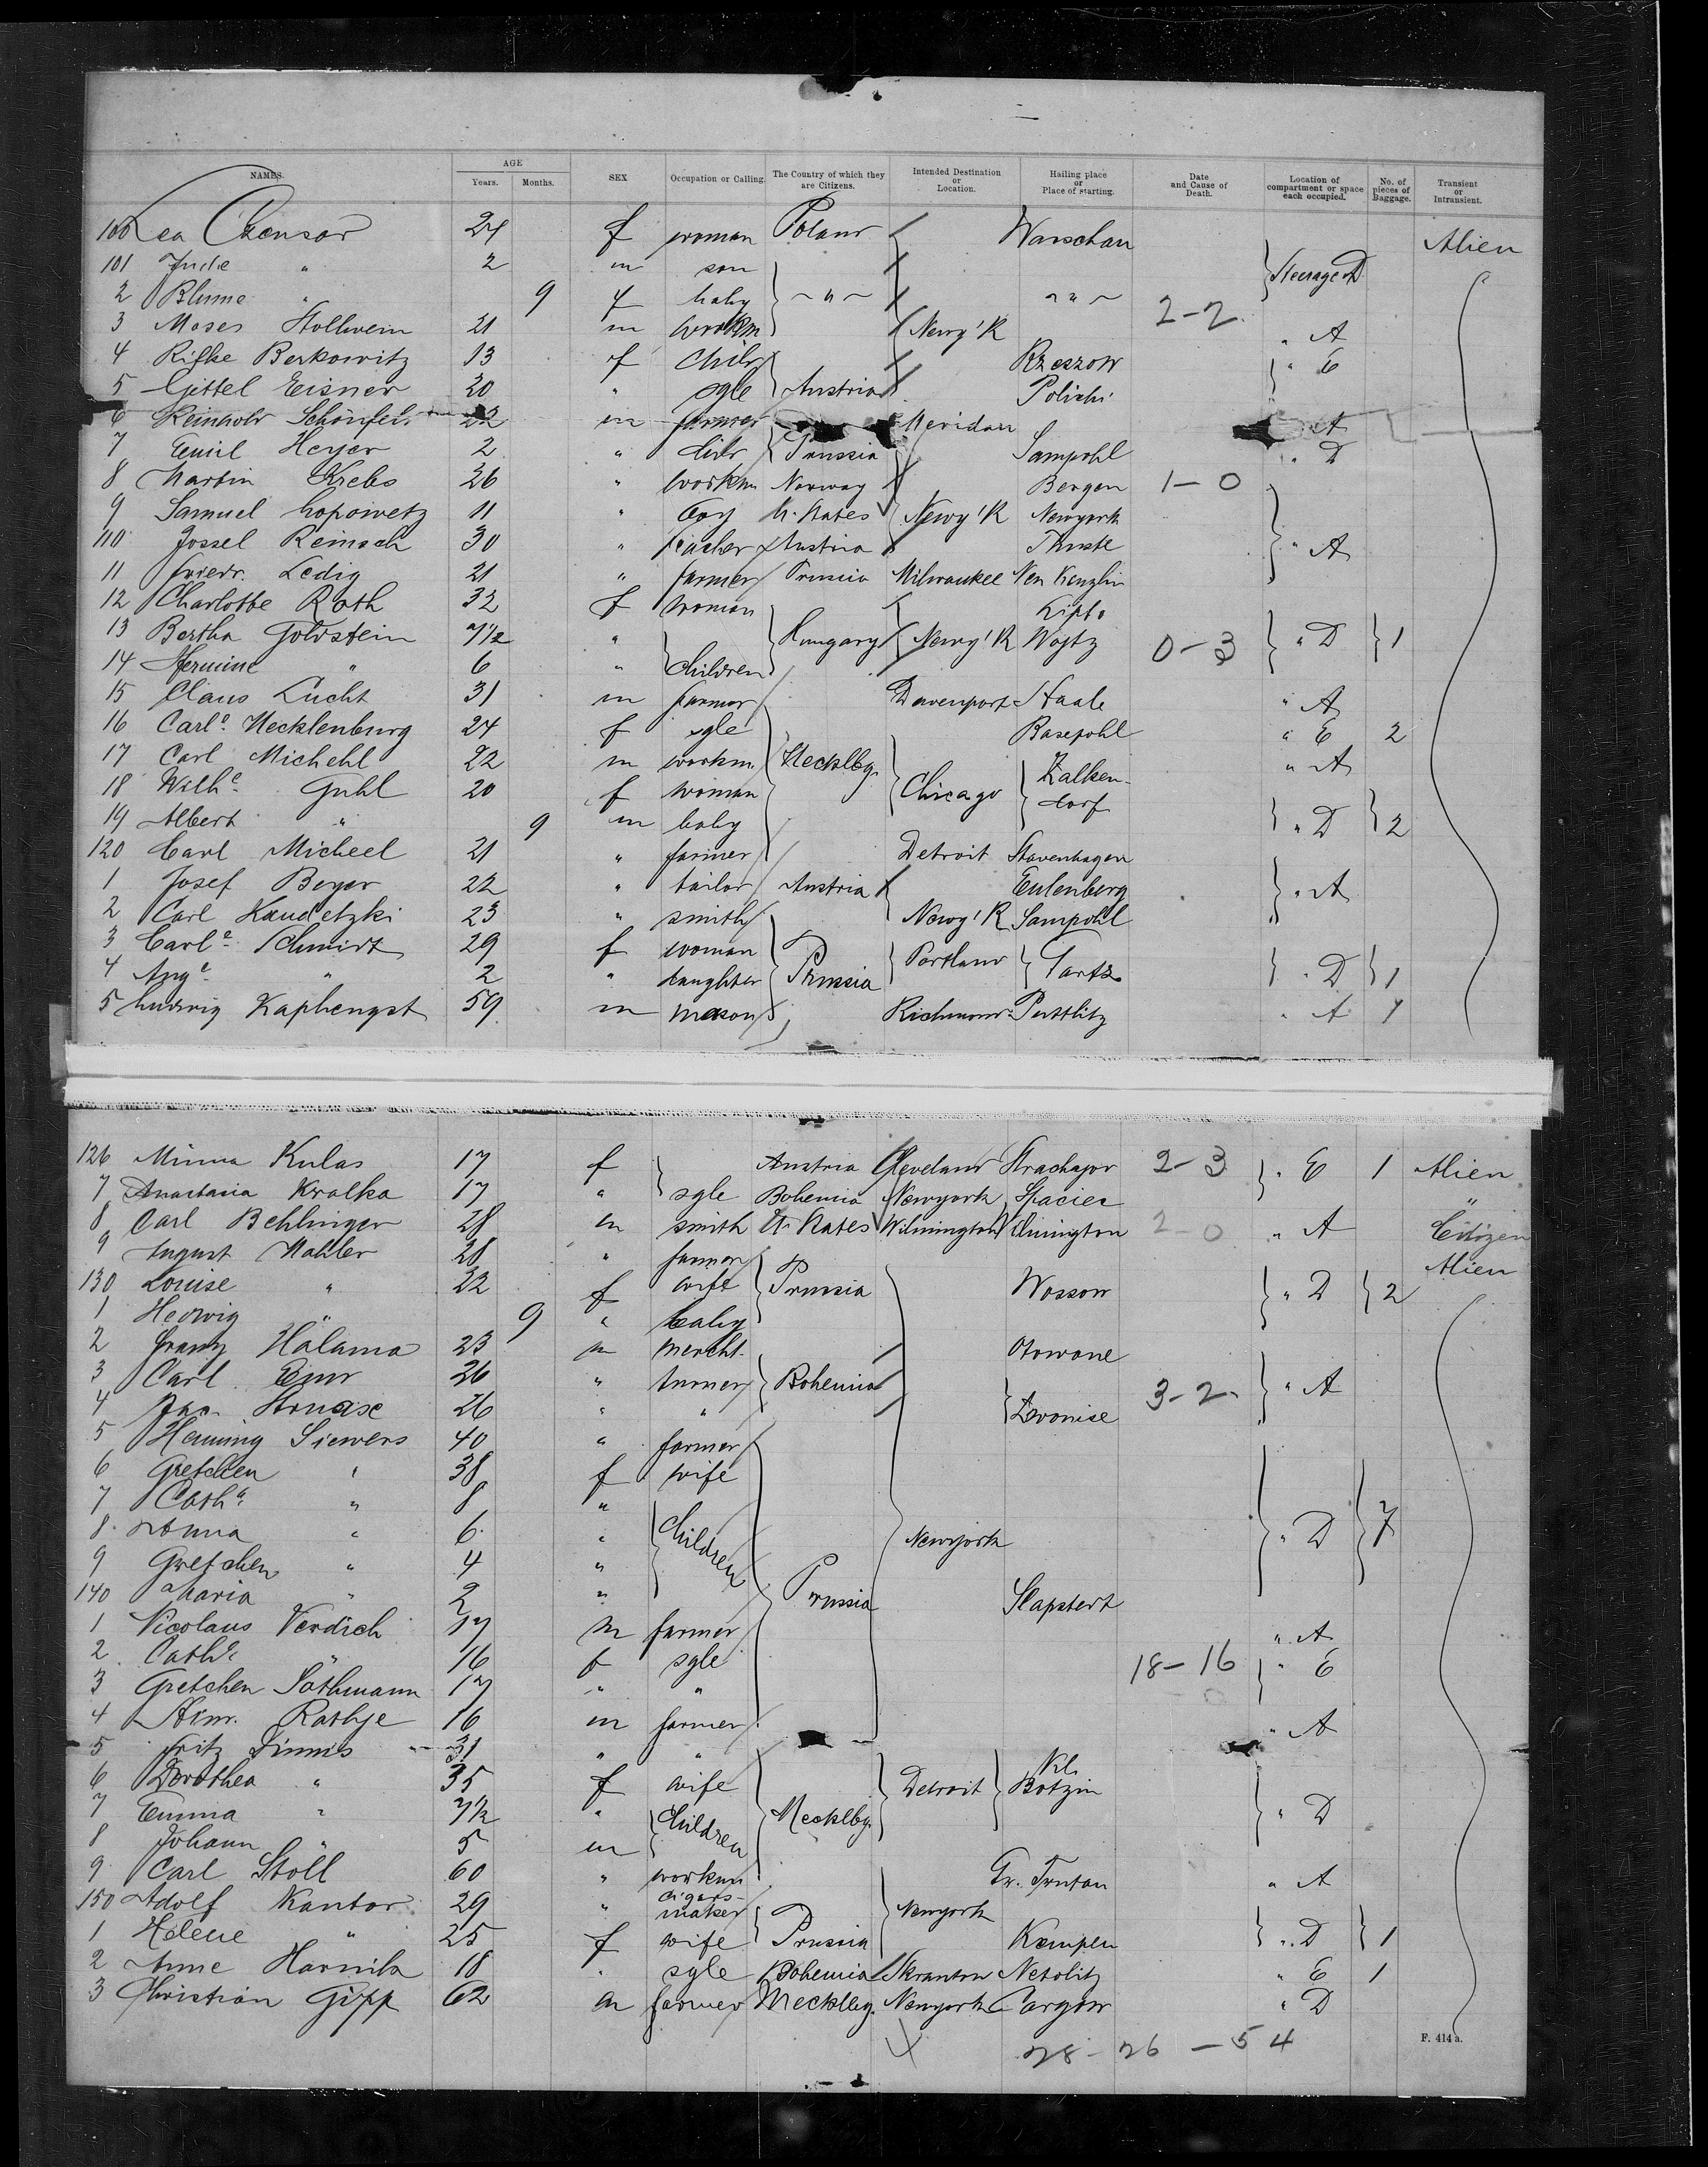 NAMES. AGE Years. Months. SEX Occupation or Calling. The Country of which they are Citizens. Intended Destination or Location. Hailing place or Place of starting. Date and Cause of Death. Location of compartment or space each occupied. No. of pieces of Baggage. Transient or Intransient.
100 Lea 24 f woman Poland Warschau Alien
101 Jude " 2 m son Steerage D
2 Blume " 9 f baby " " 2-2
3 Moses Stollwein 21 m workm Newy'k " A
4 Rifke Berkowitz 13 f child Rzeszow " E
5 Gittel Eisner 20 " sgle Austria
6 Reinhold 22 m farmer Meridan A
7 Emil Heyer 2 " child Prussia Sampohl " D
8 Martin Krebs 26 " workm Norway Bergen 1-0
9 Samuel 11 " boy U. States Newy'k Newyork
110 Jossel Reinsch 30 " teacher Austria " A
11 Friedr. Ledig 21 " farmer Prussia Milwaukee Neu Kenzlin
12 Charlotte Roth 32 f woman Lipto
13 Bertha Goldstein 7½ " Hungary Newy'k 0-3 " D 1
14 Hermine " 6 " children
15 Claus Lucht 31 m farmer Davenport Haale " A
16 Carl.e Mecklenburg 24 f sgle Basepohl " E 2
17 Carl Michehl 22 m workm. Mecklbg. Zalken- " A
18 Wilh.e Guhl 20 f woman Chicago dorf
19 Albert " 9 m baby " D 2
120 Carl Micheel 21 " farmer Detroit Stavenhagen
1 Josef Beyer 22 " tailor Austria Eulenberg " A
2 Carl 23 " smith Newy'k Sampohl
3 Carl.e Schmidt 29 f woman Portland
4 Aug.e " 2 " daughter Prussia " D 1
5 Ludwig Kaphengst 59 m mason Richmond " A 1
126 Minna Kulas 17 f Austria Cleveland 2-3 " E 1 Alien
7 Anastasia Kralka 17 " sgle Bohemia Newyork "
8 Carl Behlinger 28 m smith U. States Wilmington Wilmington 2-0 " A Citizen
9 August Mahler 28 " farmer Alien
130 Louise " 22 f wife Prussia Wossow " D 2
1 Hedwig " 9 " baby
2 Franz Halama 23 m mercht.
3 Carl 26 " turner Bohemia 3-2 " A
4 26 " "
5 Henning Siewers 40 " farmer
6 Gretchen " 38 f wife
7 Cath.a " 8 "
8 Anna " 6 " children Newyork " D 7
9 Gretchen " 4 "
140 Maria " 2 " Prussia
1 Nicolaus Verdich 17 m farmer " A
2 Cath.e " 16 f sgle 18-16 " E
3 Gretchen Söthmann 17 " " 0
4 Hinr. Rathje 16 m farmer " A
5 Fritz 31 " " Kl.
6 Dorothea " 35 f wife Detroit Botzin
7 Emma " 7½ " children Mecklbg. " D
8 Johann " 5 m
9 Carl Stoll 60 " workm Gr. " A
150 Adolf Kantor 29 " cigars-maker Newyork
1 Helene " 25 f wife Prussia Kempen " D 1
2 Anne 18 " sgle Bohemia Skranton Netolitz " E 1
3 Christian Gipp 62 m farmer Mecklbg. Newyork Cargow " D
28-26-54
F. 414 a.